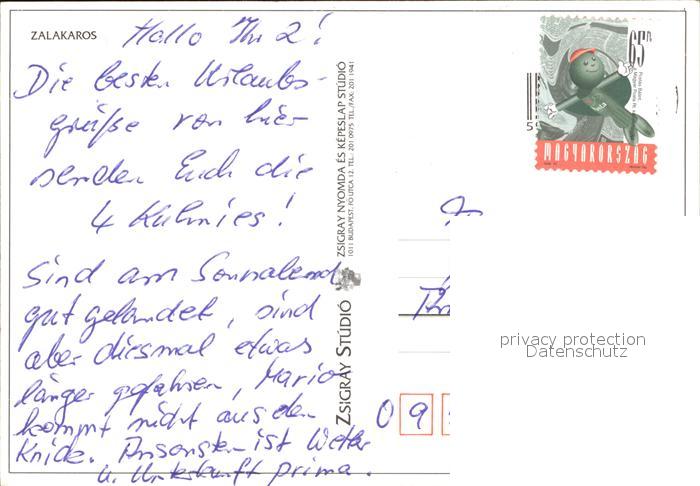 ZALAKAROS
Hallo Ihr 2!
Die besten Urlaubs-
grüße von hier
senden Euch die
4 Kuhnies!
Sind am Sonnabend
gut gelandet, sind
aber diesmal etwas
länger gefahren, Mario
kommt nicht aus den
Knick. Ansonsten ist Wetter
u. Unterkunft prima.
ZSIGRAY STÚDIÓ
ZSIGRAY NYOMDA ÉS KÉPESLAP STÚDIÓ
1011 BUDAPEST, FŐ UTCA 12. TEL.: 201 0975 TEL./FAX: 201 1941
65 Ft
MAGYARORSZÁG
privacy protection
Datenschutz
0 9